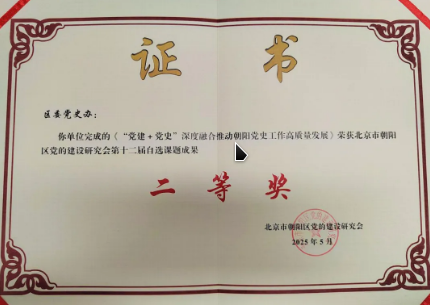 证书
区委党史办：
你单位完成的《“党建+党史”深度融合推动朝阳党史工作高质量发展》荣获北京市朝阳
区党的建设研究会第十二届自选课题成果
二等奖
北京市朝阳区党的建设研究会
2025年5月